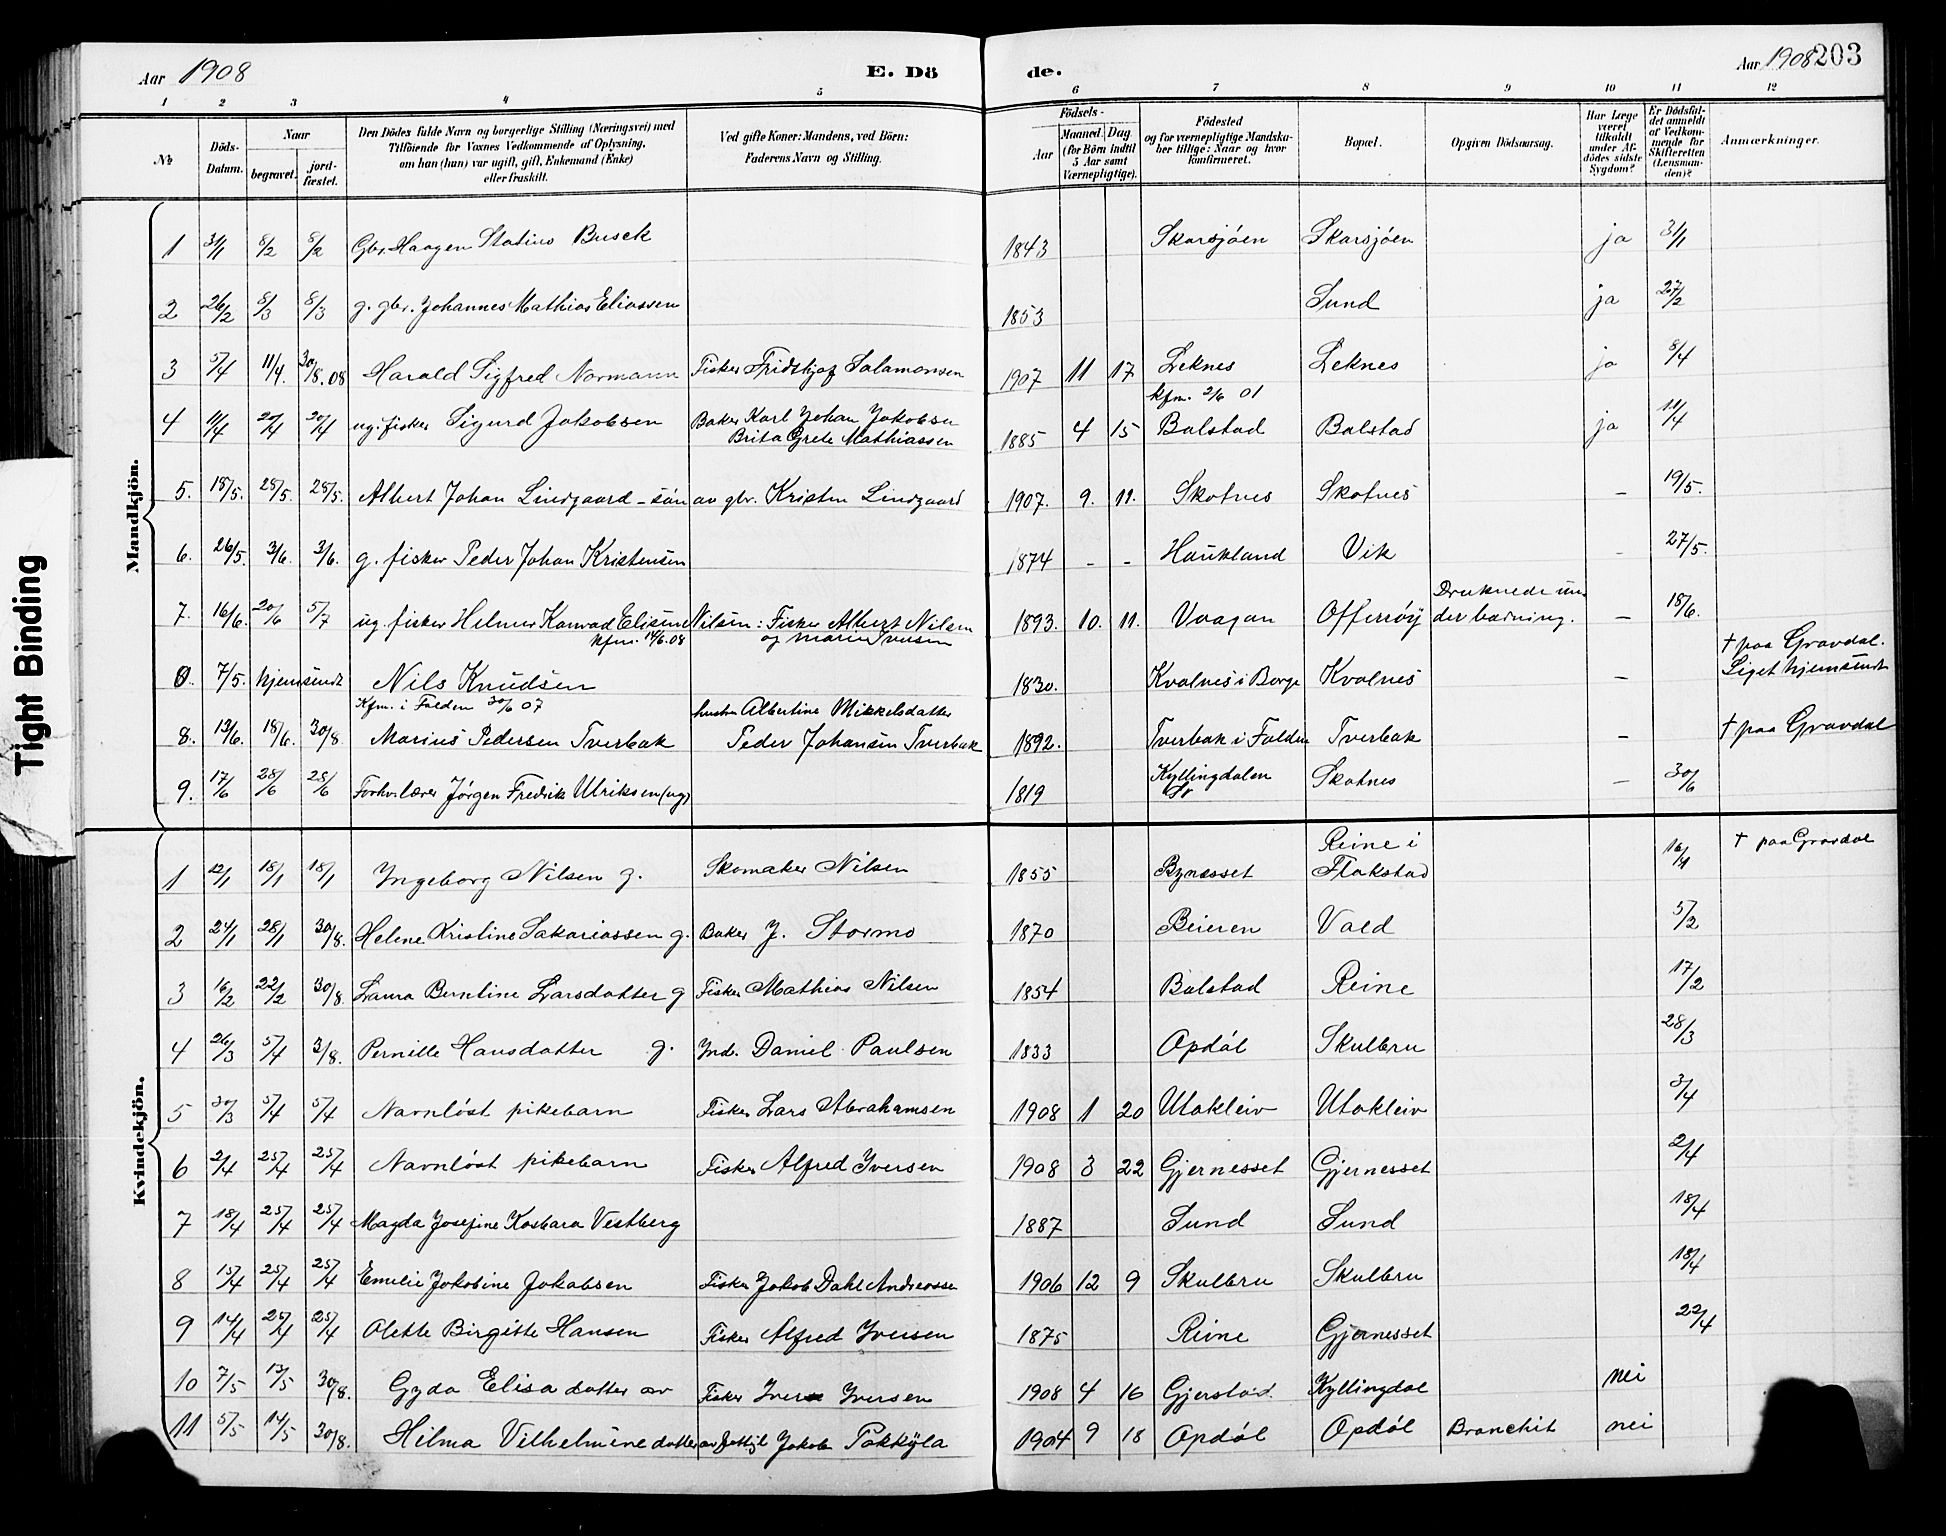 Aar 1908 E. Dö de. Aar 1908 203
1 2 3 4 5 6 7 8 9 10 11 12
№ Döds-Datum. Naar begravet. jordfæstet. Den Dödes fulde Navn og borgerlige Stilling (Næringsvei) med Tilföiende for Voxnes Vedkommende af Oplysning, om han (hun) var ugift, gift, Enkemand (Enke) eller fraskilt. Ved gifte Koner: Mandens, ved Börn: Faderens Navn og Stilling. Födsels- Aar Maaned. Dag (for Börn indtil 5 Aar samt Værnepligtige). Födested og for værnepligtige Mandskaber tillige: Naar og hvor konfirmeret. Bopæl. Opgiven Dödsaarsag. Har Læge været tilkaldt under Afdödes sidste Sygdom? Er Dödsfaldet anmeldt af Vedkommende for Skifteretten (Lensmanden)? Anmærkninger.
Mandkjön.
1 31/1 8/2 8/2 Gbr. Haagen Statius Busck 1843 Skarsjöen Skarsjöen ja 31/1
2 26/2 8/3 8/3 g. gbr. Johannes Mathias Eliassen 1853 Sund ja 27/2
3 5/4 11/4. 30/8.08 Harald Sigfred Normann Fisker Fridthjof Salamonsen 1907 11 17 Leknes Leknes ja 8/4
kfm. 2/6 01
4 11/4 20/4 20/4 ug. fisker Sigurd Jakobsen Baker Karl Johan Jakobsen 1885 4 15 Balstad Balstad ja 11/4
Brita Grete Mathiassen
5. 18/5. 28/5. 28/5. Albert Johan Lindgaard - sön av gbr. Kristen Lindgaard 1907. 9. 11. Skotnes Skotnes - 19/5.
6. 26/5. 3/6. 3/6. g. fisker Peder Johan Kristensen 1874 - - Haukland Vik - 27/5.
7. 16/6. 20/6 5/7 ug. fisker Helmer Konrad Elisens Nilsen: Fisker Albert Nilsen 1893. 10. 11. Vaagan Offersöy Druknede under badning. - 18/6.
kfm. 14/6.08 og Marie Iversen
0. 7/5. hjemsendt Nils Knudsen 1830. Kvalnes i Borge Kvalnes - † paa Gravdal. Liget hjemsendt
Kfm. i Folden 30/6 07 hustru Albertine Mikkelsdatter
8. 13/6. 18/6. 30/8 Marius Pedersen Tverbak Peder Johansen Tverbak 1892. Tverbak i Folden Tverbak - † paa Gravdal
9. 17/6 28/6 28/6 Forhv. lærer Jörgen Fredrik Ulriksen (ug) 1819 Kyllingdalen Skotnes - 30/6
Kvindekjön.
1 12/1 18/1 18/1 Ingeborg Nilsen g. Skomaker Nilsen 1855 Bynesset Reine i Flakstad 16/1 † paa Gravdal
2 24/1 28/1 30/8. Helene Kristine Sakariassen g. Baker J. Stormo 1870 Beieren Vold 5/2
3 16/2 22/2 30/8. Laura Berntine Larsdatter g Fisker Mathias Nilsen 1854 Balstad Reine 17/2
4 26/3 5/4 3/8. Pernille Hansdatter g. Ind. Daniel Paulsen 1833 Opdöl Skulbru 28/3
5 30/3 5/4 5/4 Navnlöst pikebarn Fisker Lars Abrahamsen 1908 1 20 Utakleiv Utakleiv 3/4
6 2/4 25/4 25/4 Navnlöst pikebarn Fisker Alfred Iversen 1908 3 22 Gjernesset Gjernesset 2/4
7 18/4 25/4 25/4 Magda Josefine Kasbara Vestberg 1887 Sund Sund 18/4
8 15/4 25/4 25/4 Emelie Jakobine Jakobsen Fisker Jakob Dahl Andreassen 1906 12 9 Skulbru Skulbru 18/4
9 14/4 25/4 25/4 Olette Birgitte Hansen Fisker Alfred Iversen 1875 Reine Gjernesset 22/4
10 7/5 17/5 30/8. Gyda Elisa datter av Fisker Iver Iversen 1908 4 16 Gjerstad Kyllingdal nei
11 5/5 14/5 30/8. Hilma Vilhelmine datter av Jakob Pakkyla 1904 9 18 Opdöl Opdöl Bronchit nei
Tight Binding